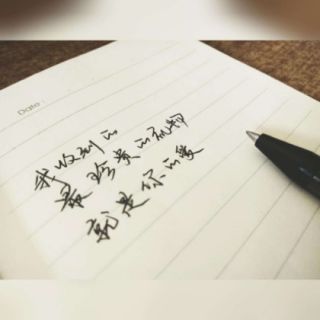 Date:
我收到的
最珍贵的礼物
就是你的爱